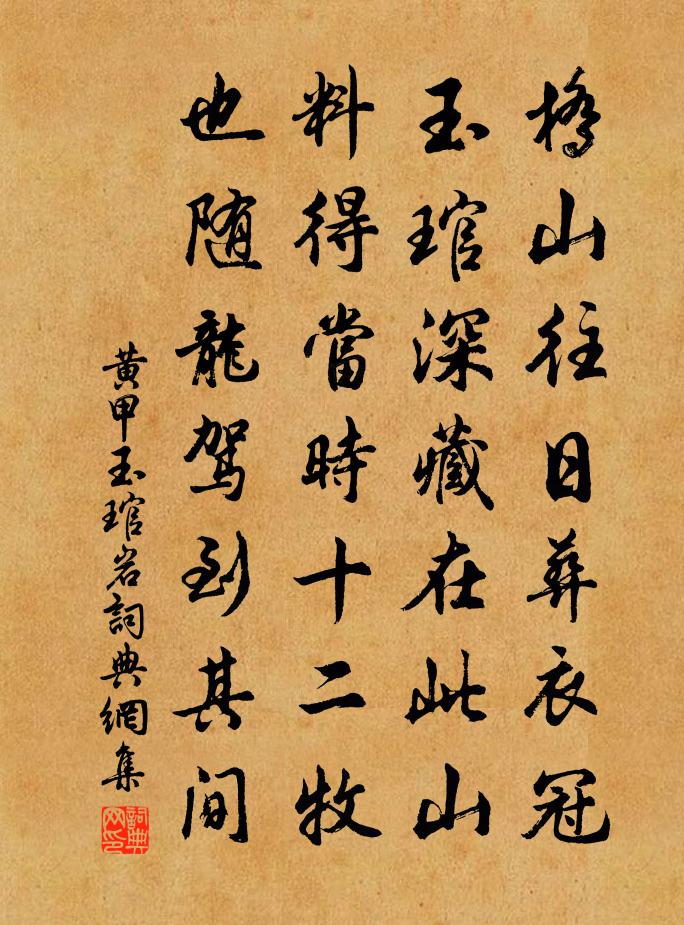 橋山往日葬衣冠
玉琯深藏在此山
料得當時十二牧
也随龍駕到其间
黄甲玉琯岩詞典網集
詞典网印